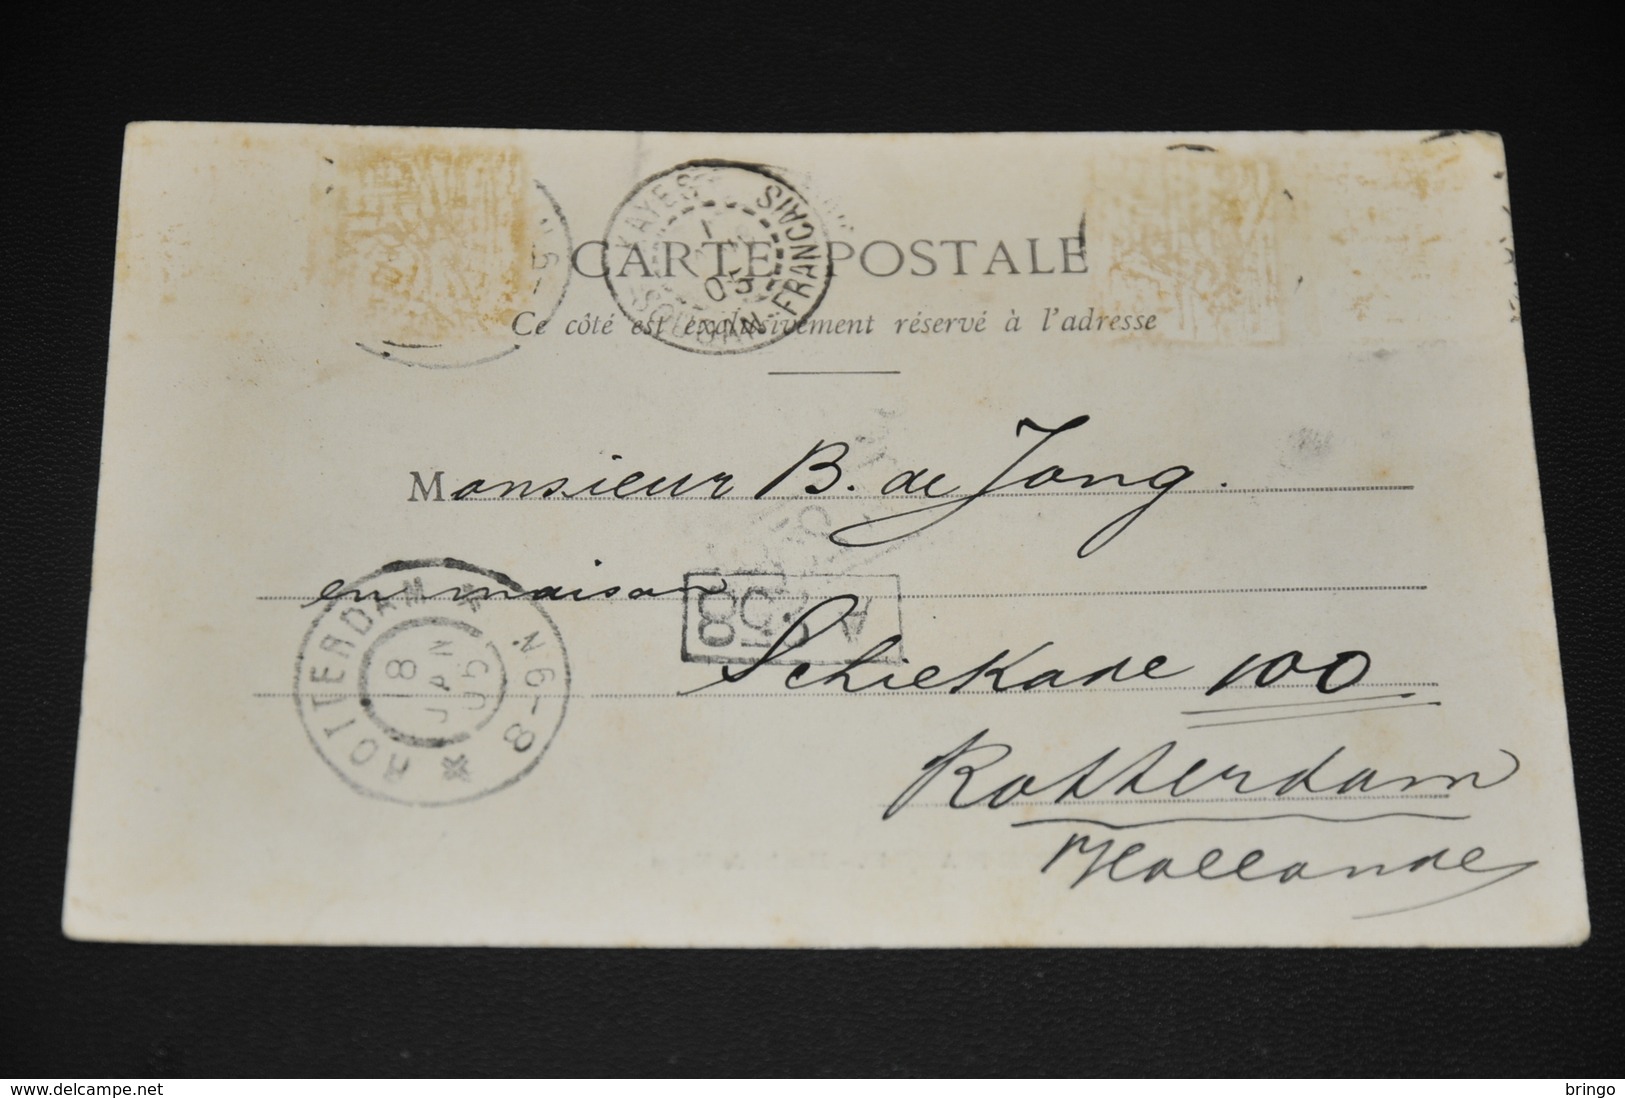 KAYES
SOUDAN FRANCAIS
03
CARTE POSTALE
Ce côté est exclusivement réservé à l'adresse
Monsieur B. de Jong.
en maison
A 258
Schiekade 100
ROTTERDAM * N 6-8 *
8 JAN 05
Rotterdam
Hollande
www.delcampe.net
bringo